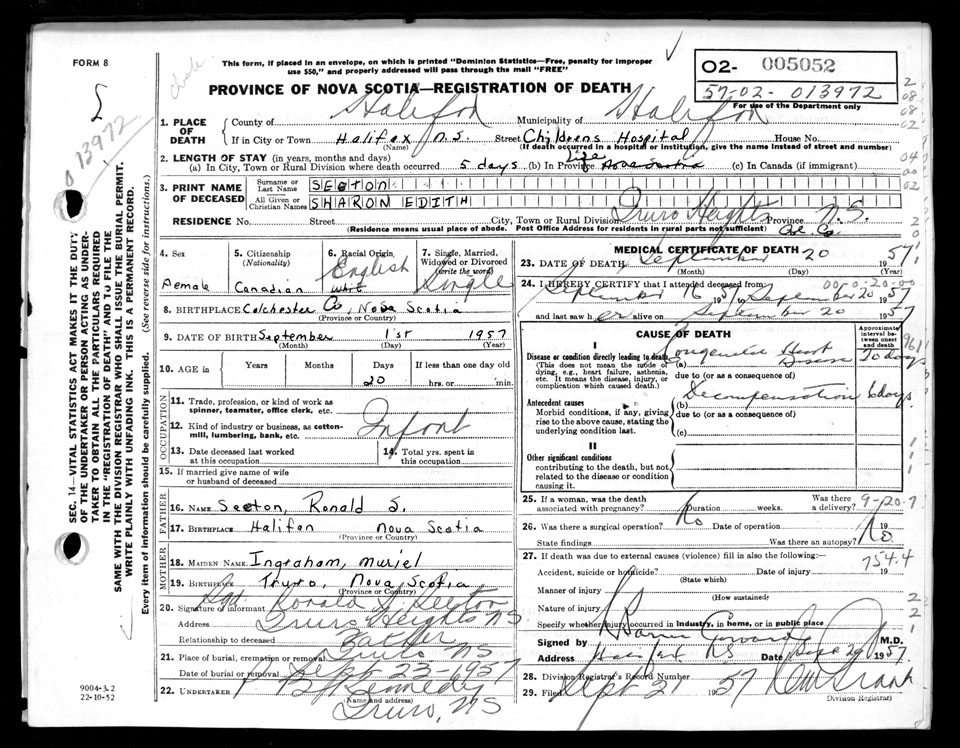 FORM 8
This form, if placed in an envelope, on which is printed "Dominion Statistics—Free, penalty for improper
use $50," and properly addressed will pass through the mail "FREE"
O2- 005052
57-02- 013972
For use of the Department only
PROVINCE OF NOVA SCOTIA—REGISTRATION OF DEATH
013972
SEC. 14—VITAL STATISTICS ACT MAKES IT THE DUTY
OF THE UNDERTAKER OR PERSON ACTING AS UNDER-
TAKER TO OBTAIN ALL THE PARTICULARS REQUIRED
IN THE "REGISTRATION OF DEATH" AND TO FILE THE
SAME WITH THE DIVISION REGISTRAR WHO SHALL ISSUE THE BURIAL PERMIT.
WRITE PLAINLY WITH UNFADING INK. THIS IS A PERMANENT RECORD.
Every item of information should be carefully supplied. (See reverse side for instructions.)
1. PLACE OF DEATH County of Halifax Municipality of Halifax
If in City or Town Halifax N.S. Street Childrens Hospital House No.
(Name) (If death occurred in a hospital or institution, give the name instead of street and number)
2. LENGTH OF STAY (in years, months and days)
(a) In City, Town or Rural Division where death occurred 5 days (b) In Province Life Nova Scotia (c) In Canada (if immigrant)
3. PRINT NAME OF DECEASED Surname or Last Name SEETON
All Given or Christian Names SHARON EDITH
RESIDENCE No. Street City, Town or Rural Division Truro Heights Province N.S.
(Residence means usual place of abode. Post Office Address for residents in rural parts not sufficient) Col. Co.
4. Sex Female
5. Citizenship (Nationality) Canadian
6. Racial Origin English White
7. Single, Married, Widowed or Divorced (write the word) Single
8. BIRTHPLACE Colchester Co, Nova Scotia
(Province or Country)
9. DATE OF BIRTH September 1st 1957
(Month) (Day) (Year)
10. AGE IN Years Months Days 20 If less than one day old hrs. or min.
OCCUPATION
11. Trade, profession, or kind of work as spinner, teamster, office clerk, etc.
12. Kind of industry or business, as cotton-mill, lumbering, bank, etc. Infant
13. Date deceased last worked at this occupation
14. Total yrs. spent in this occupation
15. If married give name of wife or husband of deceased
FATHER
16. NAME Seeton, Ronald S.
17. BIRTHPLACE Halifax Nova Scotia
(Province or Country)
MOTHER
18. MAIDEN NAME Ingraham, Muriel
19. BIRTHPLACE Truro, Nova Scotia
(Province or Country)
20. Signature of informant Sgd. Ronald S. Seeton
Address Truro Heights NS
Relationship to deceased Father
21. Place of burial, cremation or removal Truro NS
Date of burial or removal Sept 22-1957
22. UNDERTAKER Kennedy
(Name and address)
Truro, NS
9004-3.2
22-10-52
MEDICAL CERTIFICATE OF DEATH
23. DATE OF DEATH September 20 1957
(Month) (Day) (Year)
24. I HEREBY CERTIFY that I attended deceased from
September 16 57 to September 20 1957
and last saw her alive on September 20 1957
CAUSE OF DEATH
Approximate interval between onset and death
I
Disease or condition directly leading to death (a) Congenital Heart Disease 20 days
(This does not mean the mode of dying, e.g., heart failure, asthenia, etc. It means the disease, injury, or complication which caused death.)
due to (or as a consequence of)
Antecedent causes
(b) Decompensation 6 days
Morbid conditions, if any, giving rise to the above cause, stating the underlying condition last.
due to (or as a consequence of)
(c)
II
Other significant conditions
contributing to the death, but not related to the disease or condition causing it.
25. If a woman, was the death associated with pregnancy? No Duration weeks. Was there a delivery? 9-20-7
26. Was there a surgical operation? Date of operation 19
State findings Was there an autopsy? No
27. If death was due to external causes (violence) fill in also the following:— 754.4
Accident, suicide or homicide? Date of injury 19
(State which)
Manner of injury
(How sustained)
Nature of injury
Specify whether injury occurred in industry, in home, or in public place
Signed by M.D.
Address Halifax NS Date Sept 20 1957
28. Division Registrar's Record Number
29. Filed Sept 21 1957
Division Registrar